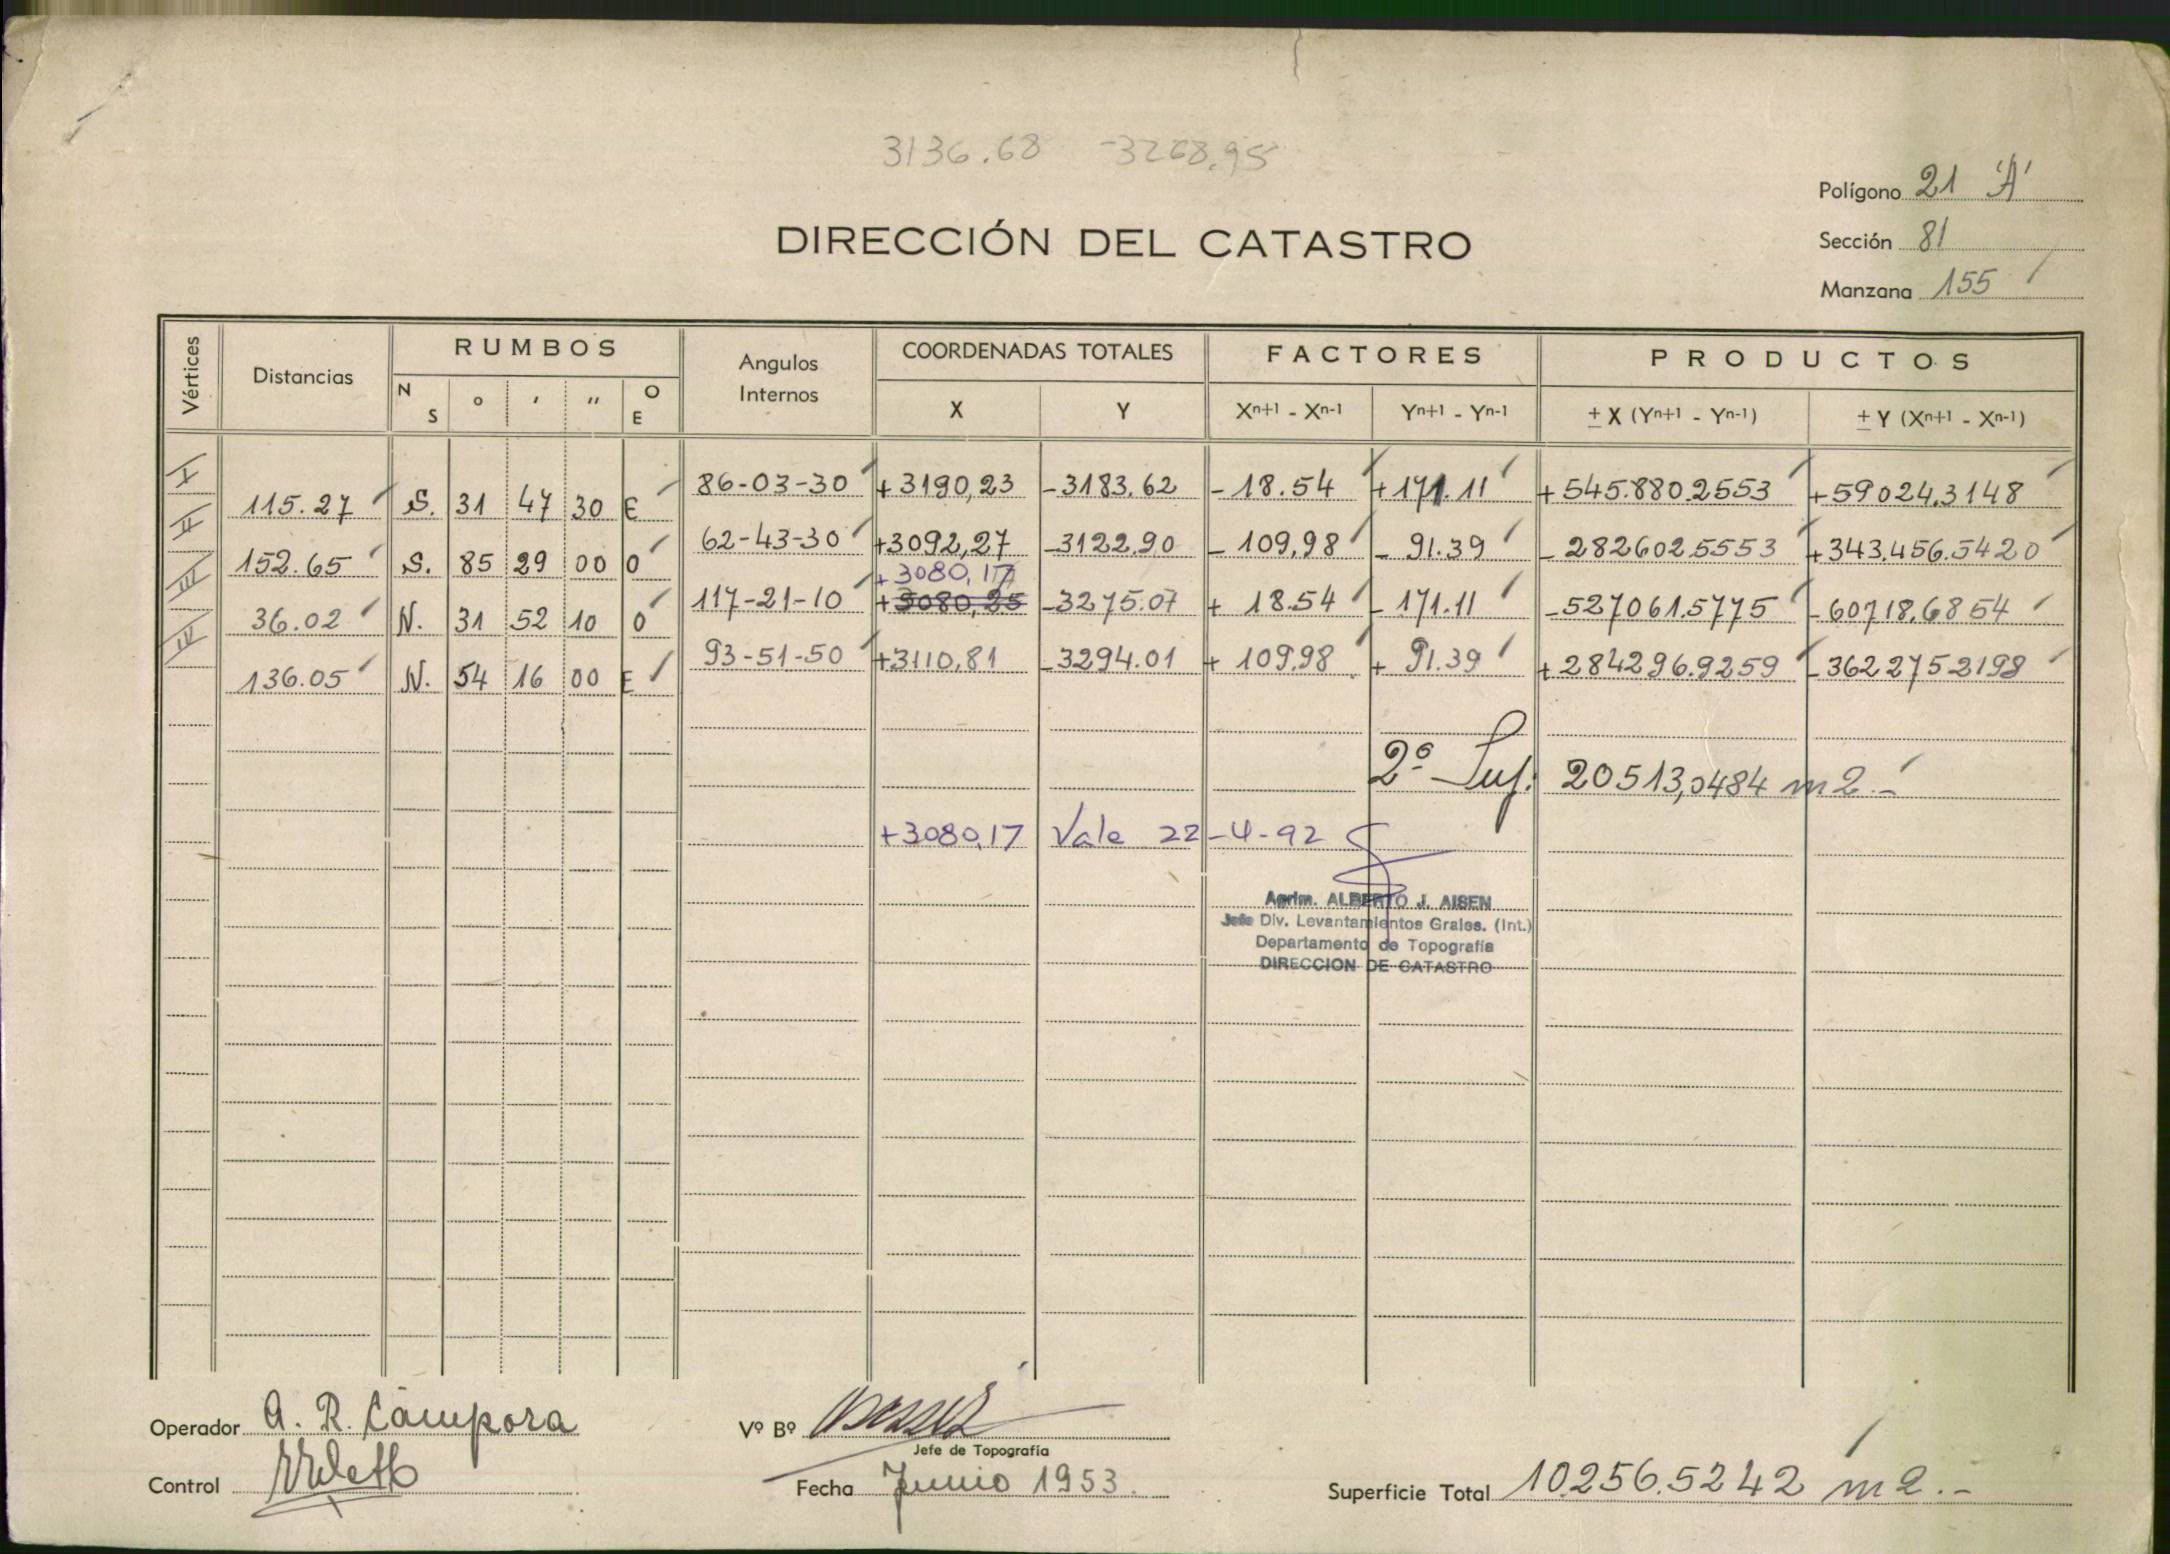 3136.68 -3268.95
Polígono 21 'A'
DIRECCIÓN DEL CATASTRO
Sección 81
Manzana 155
Vértices Distancias RUMBOS Angulos Internos COORDENADAS TOTALES FACTORES PRODUCTOS
N S o ' " O E X Y Xn+1 - Xn-1 Yn+1 - Yn-1 ± X (Yn+1 - Yn-1) ± Y (Xn+1 - Xn-1)
I 86-03-30 +3190,23 -3183.62 -18.54 +171.11 +545.880.2553 +59024.3148
115.27 S. 31 47 30 E
II 62-43-30 +3092,27 -3122.90 -109,98 -91.39 -282602.5553 +343.456.5420
152.65 S. 85 29 00 O
+3080,17
III 117-21-10 +3080,25 -3275.07 +18.54 -171.11 -527061.5775 -60718.6854
36.02 N. 31 52 10 O
IV 93-51-50 +3110,81 -3294.01 +109.98 +91.39 +284296.9259 -3622752198
136.05 N. 54 16 00 E
2º Sup: 20513,0484 m2.-
+3080,17 Vale 22-4-92
Agrim. ALBERTO J. AISEN
Jefe Div. Levantamientos Grales. (Int.)
Departamento de Topografía
DIRECCION DE CATASTRO
Operador A. R. Cámpora
Vº Bº
Jefe de Topografía
Control
Fecha Junio 1953.
Superficie Total 10256.5242 m2.-